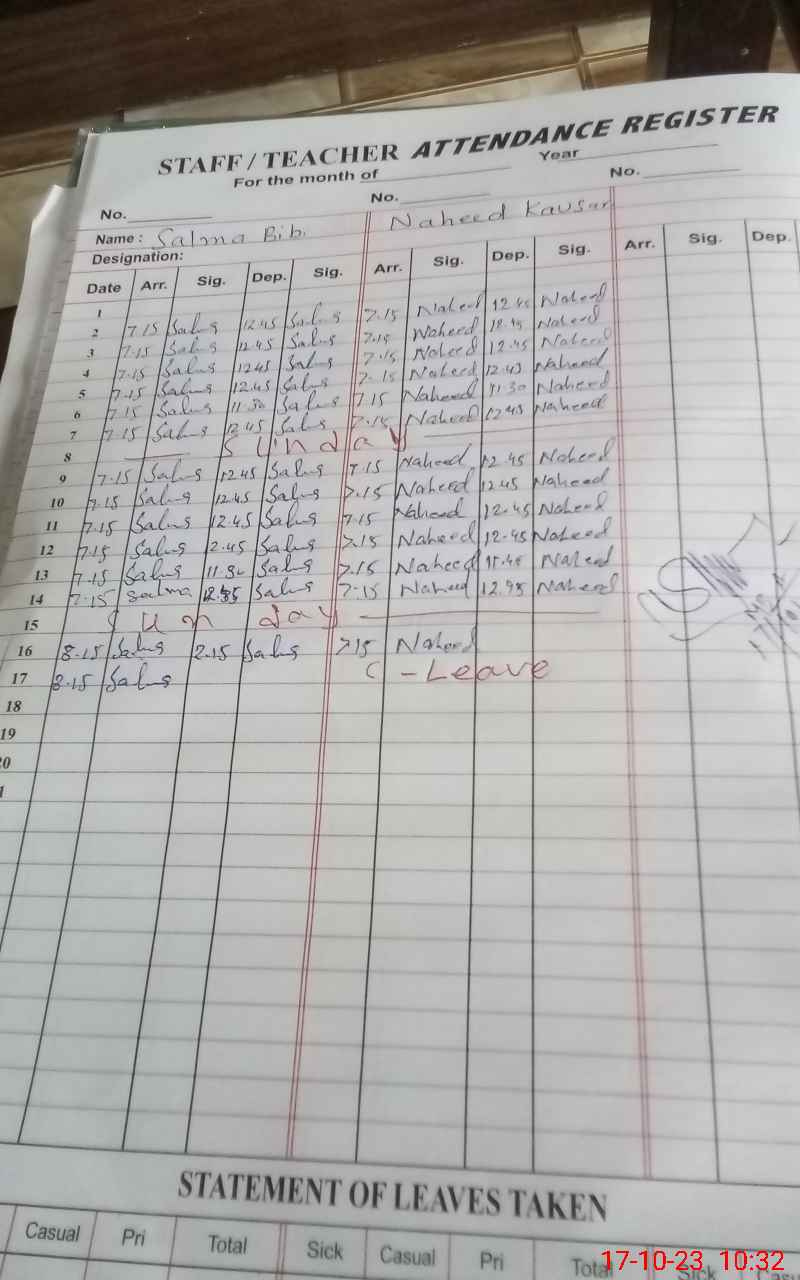 STAFF / TEACHER ATTENDANCE REGISTER
For the month of Year
No. No. No.
Name : Salma Bibi Naheed Kausar
Designation:
Date Arr. Sig. Dep. Sig. Arr. Sig. Dep. Sig. Arr. Sig. Dep.
1
2 7.15 Salma 12.45 Salma 7.15 Naheed 12.45 Naheed
3 7.15 Salma 12.45 Salma 7.15 Naheed 12.45 Naheed
4 7.15 Salma 12.45 Salma 7.15 Naheed 12.45 Naheed
5 7.15 Salma 12.45 Salma 7.15 Naheed 12.45 Naheed
6 7.15 Salma 11.30 Salma 7.15 Naheed 11.30 Naheed
7 7.15 Salma 12.45 Salma 7.15 Naheed 12.45 Naheed
8 Sunday
9 7.15 Salma 12.45 Salma 7.15 Naheed 12.45 Naheed
10 7.15 Salma 12.45 Salma 7.15 Naheed 12.45 Naheed
11 7.15 Salma 12.45 Salma 7.15 Naheed 12.45 Naheed
12 7.15 Salma 12.45 Salma 7.15 Naheed 12.45 Naheed
13 7.15 Salma 11.30 Salma 7.15 Naheed Naheed
14 7.15 Salma Salma 7.15 Naheed 12.45 Naheed
15 Sunday
16 8.15 Salma 2.15 Salma 7.15 Naheed
17 8.15 Salma C - Leave
18
19
STATEMENT OF LEAVES TAKEN
Casual Pri Total Sick Casual Pri Total Sick
17-10-23 10:32